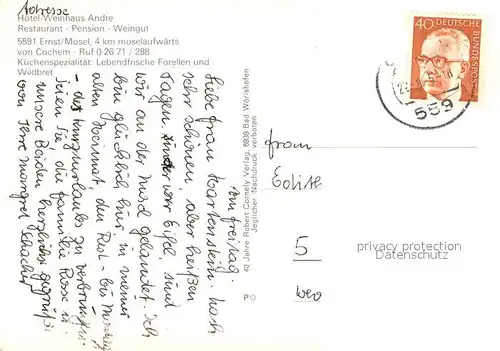 Adresse
Hotel-Weinhaus Andre
Restaurant - Pension - Weingut
5591 Ernst/Mosel, 4 km moselaufwärts
von Cochem - Ruf 0 26 71 / 288
Küchenspezialität: Lebendfrische Forellen und
Wildbret
am Freitag.
Liebe Frau Hartenstein. Nach
sehr schönen, aber heißen
Tagen in der Eifel, sind
wir an der Mosel gelandet. Ich
bin glücklich hier, in meiner
alten Heimat, den Rest - bis Montag
- des Kurzurlaubs zu verbringen.
Seien Sie, die Familie Rosse u.
unsere Beiden herzlichst gegrüßt
von Ihrer Margret Schacht
40 Jahre Robert Cornely Verlag, 8939 Bad Wörishofen
Jeglicher Nachdruck verboten
PO
40 DEUTSCHE
BUNDESPOST
559
Edith
5
privacy protection
Datenschutz